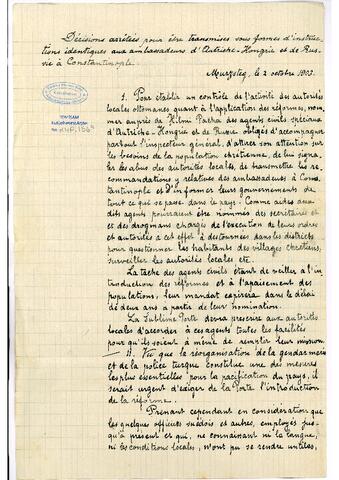 Décisions arrêtées pour être transmises sous formes d'instruc-
tions identiques aux ambassadeurs d'Autriche-Hongrie et de Rus-
sie à Constantinople.
Murzsteg, le 2 octobre 1903.
1. Pour établir un contrôle de l'activité des autorités
locales ottomanes quant à l'application des réformes, nom-
mer auprès de Hilmi Pacha des agents civils spéciaux
d'Autriche-Hongrie et de Russie obligés d'accompagner
partout l'inspecteur général, d'attirer son attention sur
les besoins de la population chrétienne, de lui signa-
ler les abus des autorités locales, de transmettre les re-
commandations y relatives des ambassadeurs à Cons
tantinople et d'informer leurs gouvernements de
tout ce qui se passe dans le pays. Comme aides aux
dits agents pourraient être nommés des secrétaires et
et des drogmans chargés de l'exécution de leurs ordres
et autorisés à cet effet à des tournées dans les districts
pour questionner les habitants des villages chrétiens,
surveiller les autorités locales etc.
La tâche des agents civils étant de veiller à l'in
troduction des réformes et à l'apaisement des
populations, leur mandat expirera dans le délai
de deux ans à partir de leur nomination.
La Sublime Porte devra prescrire aux autorités
locales d'accorder à ces agents toutes les facilités
pour qu'ils soient à même de remplir leur mission.
— 11. Vu que la réorganisation de la gendarmerie
et de la police turque constitue une des mesures
les plus essentielles pour la pacification du pays, il
serait urgent d'exiger de la Porte l'introduction
de la réforme.
Prenant cependant en considération que
les quelques officiers suédois et autres, employés jus-
qu'à présent et qui, ne connaissant ni la langue,
ni les conditions locales, n'ont pu se rendre utiles,